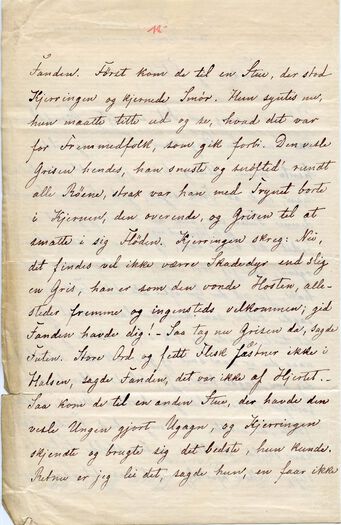 12
Fanden. Först kom de til en Stue, der stod
Kjerringen og kjernede Smör. Hun syntes nu,
hun maatte titte ud og se, hvad det var
for Fremmedfolk, som gik forbi. Den vesle
Grisen hendes, han snuste og snöfted' rundt
alle Röene, strax var han med Trynet borte
i Kjernen, den overende, og Grisen til at
smatte i sig Flöden. Kjerringen skreg: Nei,
det findes vel ikke værre Skadedyr end slig
en Gris, han er som den vonde Hosten, alle-
steder fremme og ingensteds velkommen; gid
Fanden havde dig! – Saa tag nu Grisen da, sagde
Futen. Store Ord og fett Flesk fästner ikke i
Halsen, sagde Fanden, det var ikke af Hjertet. –
Saa kom de til en anden Stue, der havde den
vesle Ungen gjort Ugagn, og Kjerringen
skjendte og brugte sig det bedste, hun kunde.
Retnu er jeg lei det, sagde hun, en faar ikke